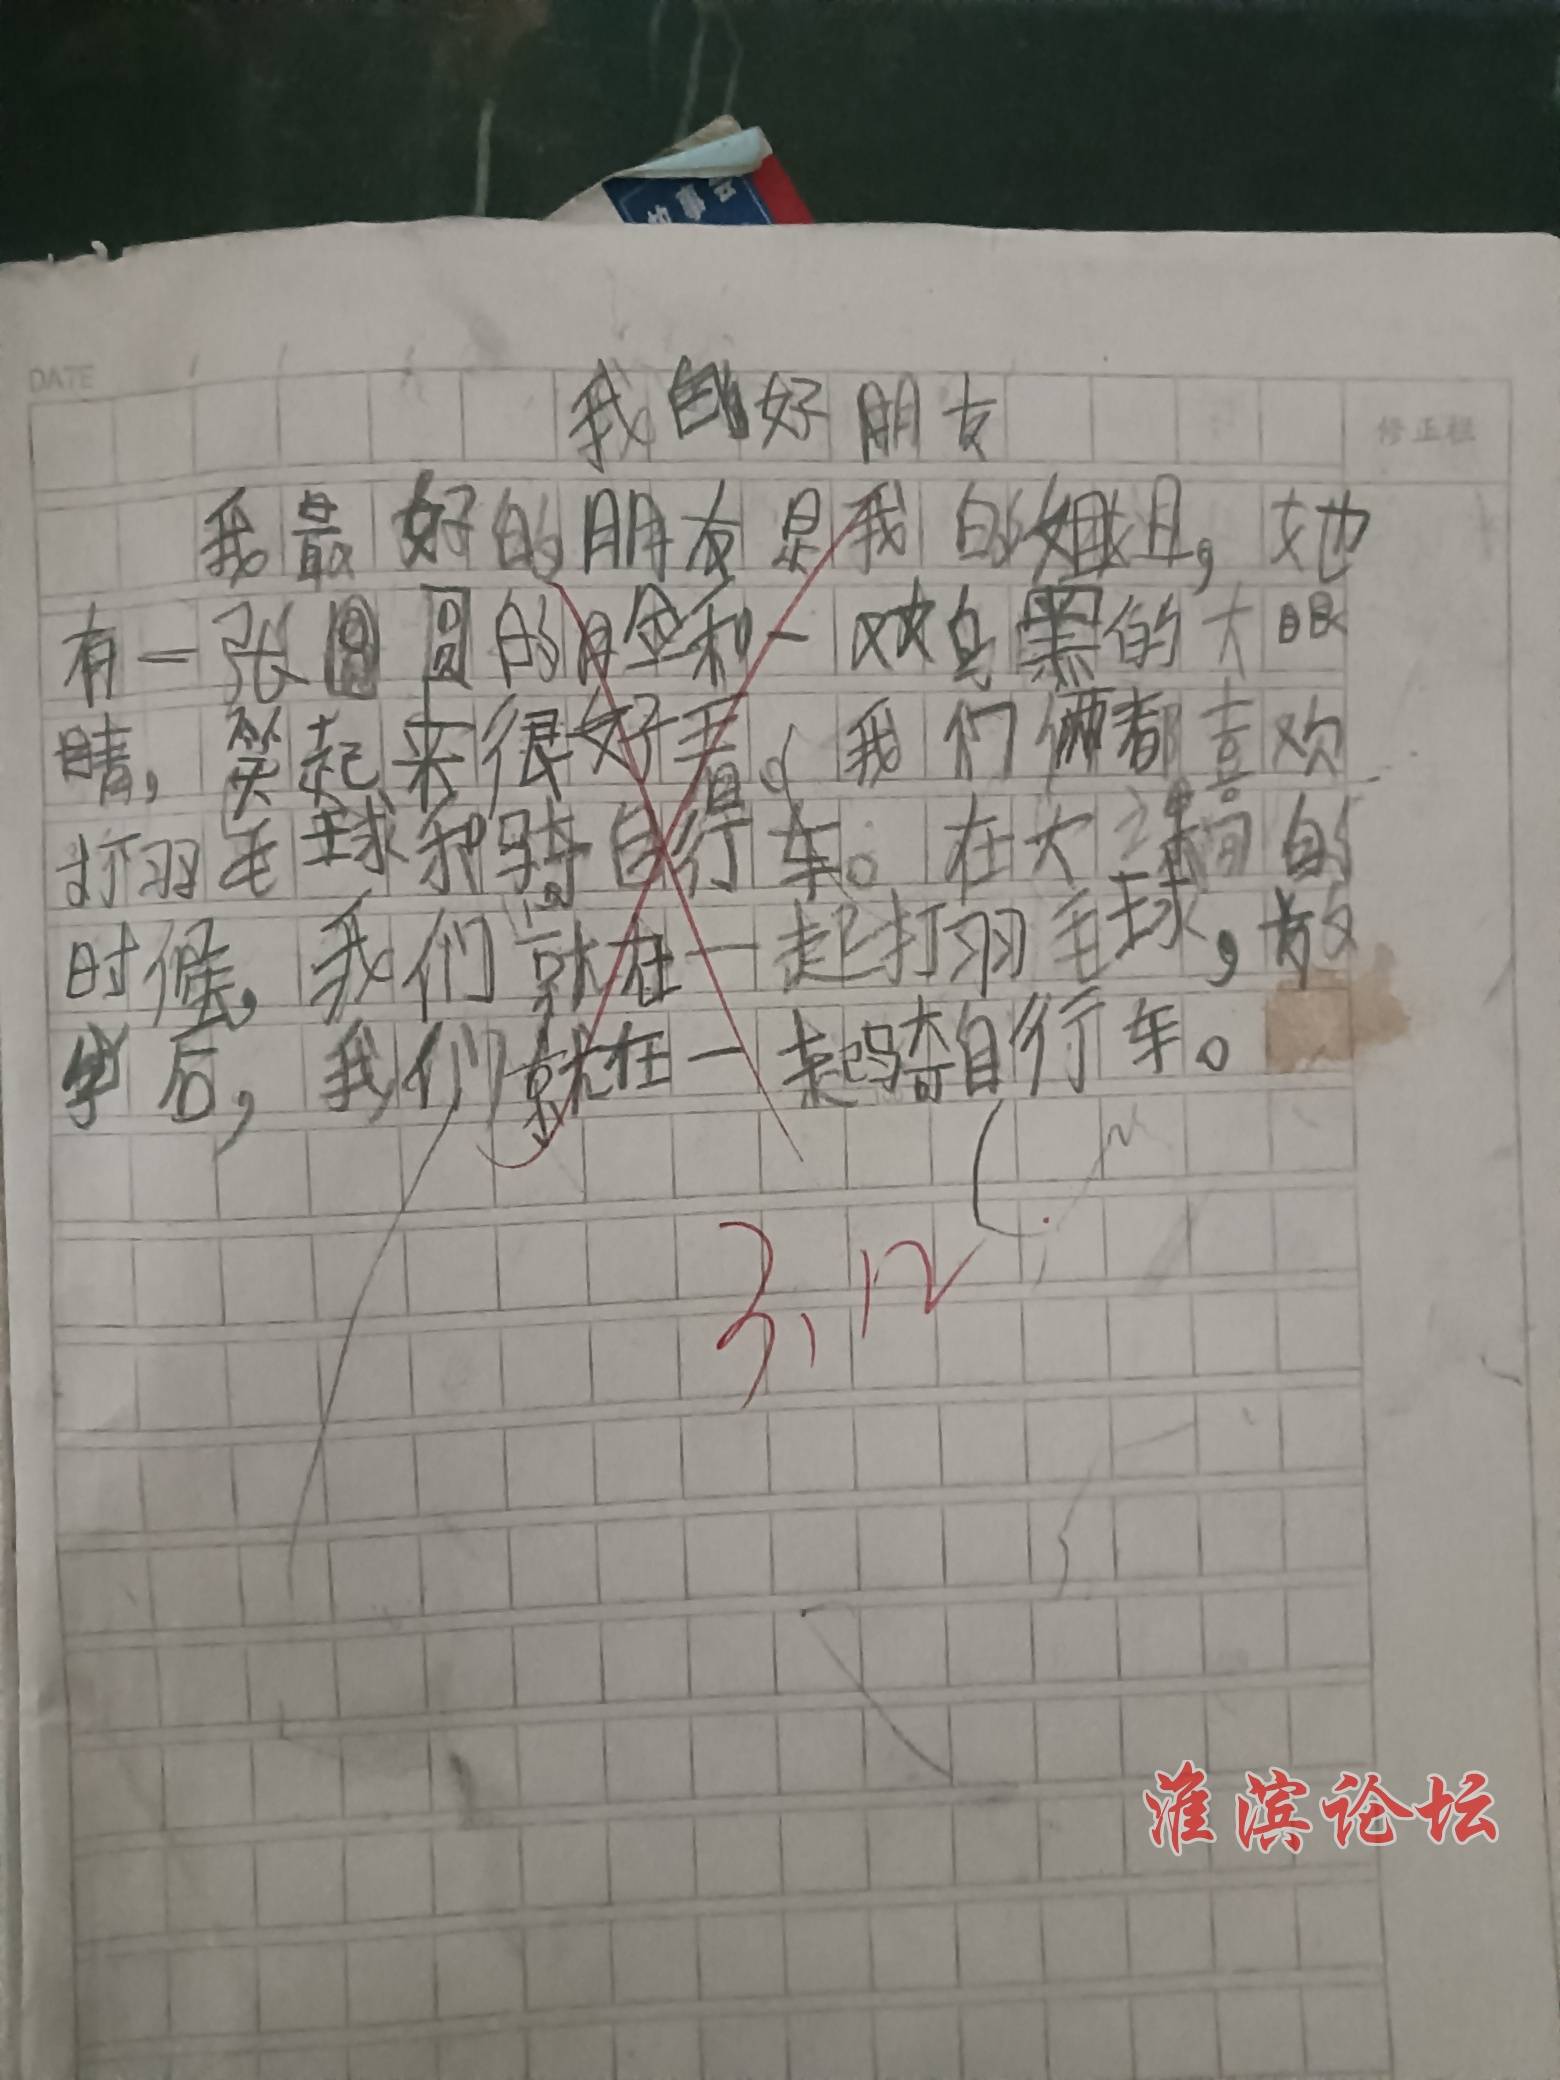 DATE
修正栏
我的好朋友
我最好的朋友是我的姐姐,她
有一张圆圆的脸和一双乌黑的大眼
睛,笑起来很好看。我们俩都喜欢
打羽毛球和骑自行车。在大课间的
时候,我们就在一起打羽毛球,放
学后,我们就在一起骑自行车。
3.12
淮滨论坛